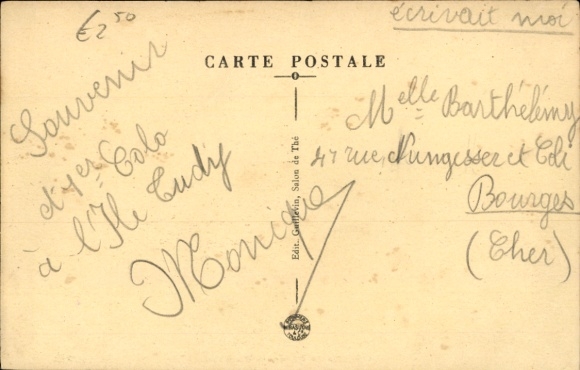 €2 50
écrivait moi
CARTE POSTALE
Souvenir
d'1er Colo
à l'Ile Tudy
Monique
Edit. Guillevin, Salon de Thé
Melle Barthélémy
47 rue Nungesser et Coli
Bourges
(Cher)